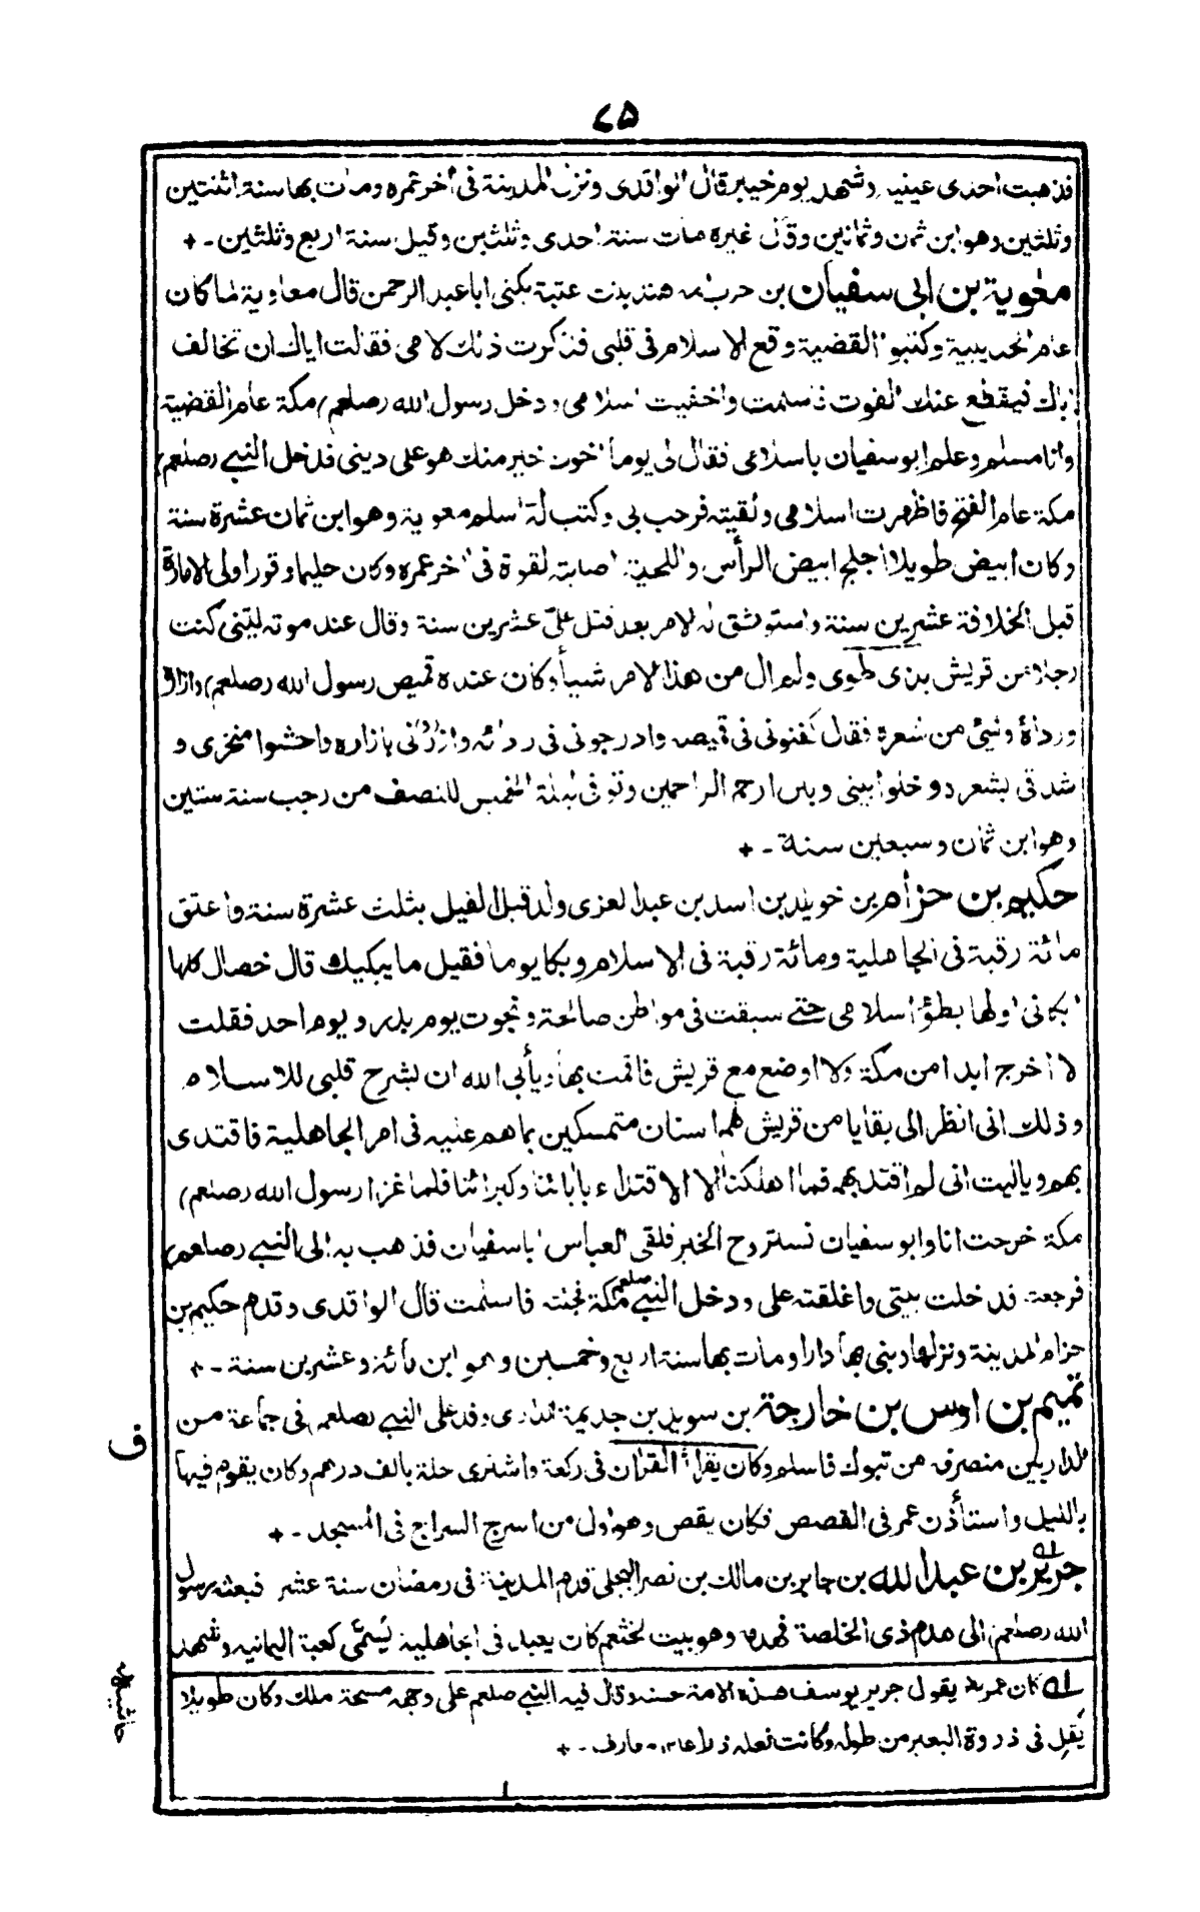 ٧٥
فذهبت احدى عينيه وشهد يوم خيبر قال الواقدى ونزل المدينة فى اخر عمره ومات بها سنة اثنتين
وثلثين وهو ابن ثمان وثمانين وقال غيره مات سنة احدى وثلثين وقيل سنة اربع وثلثين -
معوية بن ابى سفيان بن حرب امه هند بنت عتبة يكنى ابا عبد الرحمن قال معاوية لما كان
عام الحديبية وكتبوا القضية وقع الاسلام فى قلبى فذكرت ذلك لامى فقالت اياك ان تخالف
اباك فيقطع عنك القوت فاسلمت واخفيت اسلامى ودخل رسول الله (صلعم) مكة عام القضية
وانا مسلم وعلم ابو سفيان باسلامى فقال لى يوما اخوك خير منك هو على دينى فدخل النبي (صلعم)
مكة عام الفتح فاظهرت اسلامى ولقيته فرحب بى وكتب له اسلم معوية وهو ابن ثمان عشرة سنة
وكان ابيض طويلا اجلح ابيض الرأس واللحية اصابته لقوة فى اخر عمره وكان حليما وقورا ولى الامارة
قبل الخلافة عشرين سنة واستوثق له الامر بعد قتل علىّ عشرين سنة وقال عند موته ليتنى كنت
رجلا من قريش بذى طوى ولم ال من هذا الامر شيأ وكان عنده قميص رسول الله (صلعم) وازاره
ورداؤه وشئ من شعره فقال كفنونى فى قميصه وادرجونى فى ردائه وازرونى بازاره واحشوا منخرى و
شدقى بشعره وخلوا بينى وبين ارحم الراحمين وتوفى ليلة الخميس للنصف من رجب سنة ستين
وهو ابن ثمان وسبعين سنة -
حكيم بن حزام بن خويلد بن اسد بن عبد العزى ولد قبل الفيل بثلث عشرة سنة واعتق
مائة رقبة فى الجاهلية ومائة رقبة فى الاسلام وبكا يوما فقيل ما يبكيك قال خصال كلها
ابكانى اولها بطؤ اسلامى حتى سبقت فى مواطن صالحة ونجوت يوم بدر ويوم احد فقلت
لا اخرج ابدا من مكة ولا اوضع مع قريش فاقمت بها ويأبى الله ان يشرح قلبى للاسلام
وذلك انى انظر الى بقايا من قريش لهم اسنان متمسكين بما هم عليه فى امر الجاهلية فاقتدى
بهم وياليت انى لم اقتد بهم فما اهلكنا الا الاقتداء بابائنا وكبرائنا فلما غزا رسول الله (صلعم)
مكة خرجت انا وابو سفيان نستروح الخبر فلقى العباس ابا سفيان فذهب به الى النبي (صلعم)
فرجعت فدخلت بيتى واغلقته على ودخل النبي صلعم مكة فجئته فاسلمت قال الواقدى وقدم حكيم بن
حزام المدينة ونزلها وبنى بها دارا ومات بها سنة اربع وخمسين وهو ابن مائة وعشرين سنة -
تميم بن اوس بن خارجة بن سويد بن جديمة الدارى وفد على النبي (صلعم) فى جماعة من
ف
الداريين منصرفه من تبوك فاسلم وكان يقرأ القران فى ركعة واشترى حلة بالف درهم وكان يقوم فيها
بالليل واستأذن عمر فى القصص فكان يقص وهو اول من اسرج السراج فى المسجد -
جرير بن عبد الله بن جابر بن مالك بن نصر البجلى قدم المدينة فى رمضان سنة عشر فبعثه رسول
الله (صلعم) الى هدم ذى الخلصة فهدمه وهو بيت لخثعم كان يعبد فى الجاهلية يسمى كعبة اليمانية وشهد
كان عمر يقول جرير يوسف هذه الامة حسنه وقال فيه النبي صلعم على وجهه مسحة ملك وكان طويلا
يقل فى ذروة البعير من طوله وكانت نعله ذراعا ١٢ - معارف -
حاشيه